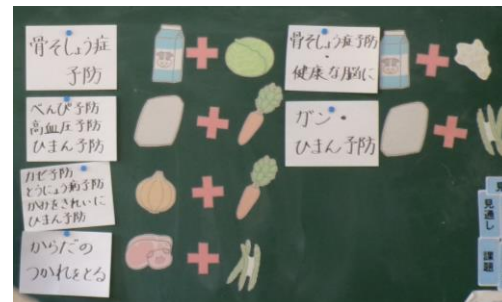 骨そしょう症
予防
べんぴ予防
高血圧予防
ひまん予防
カゼ予防
とうにょう病予防
かみをきれいに
ひまん予防
からだの
つかれをとる
骨そしょう症予防
・
健康な脳に
ガン・
ひまん予防
見通し
課題